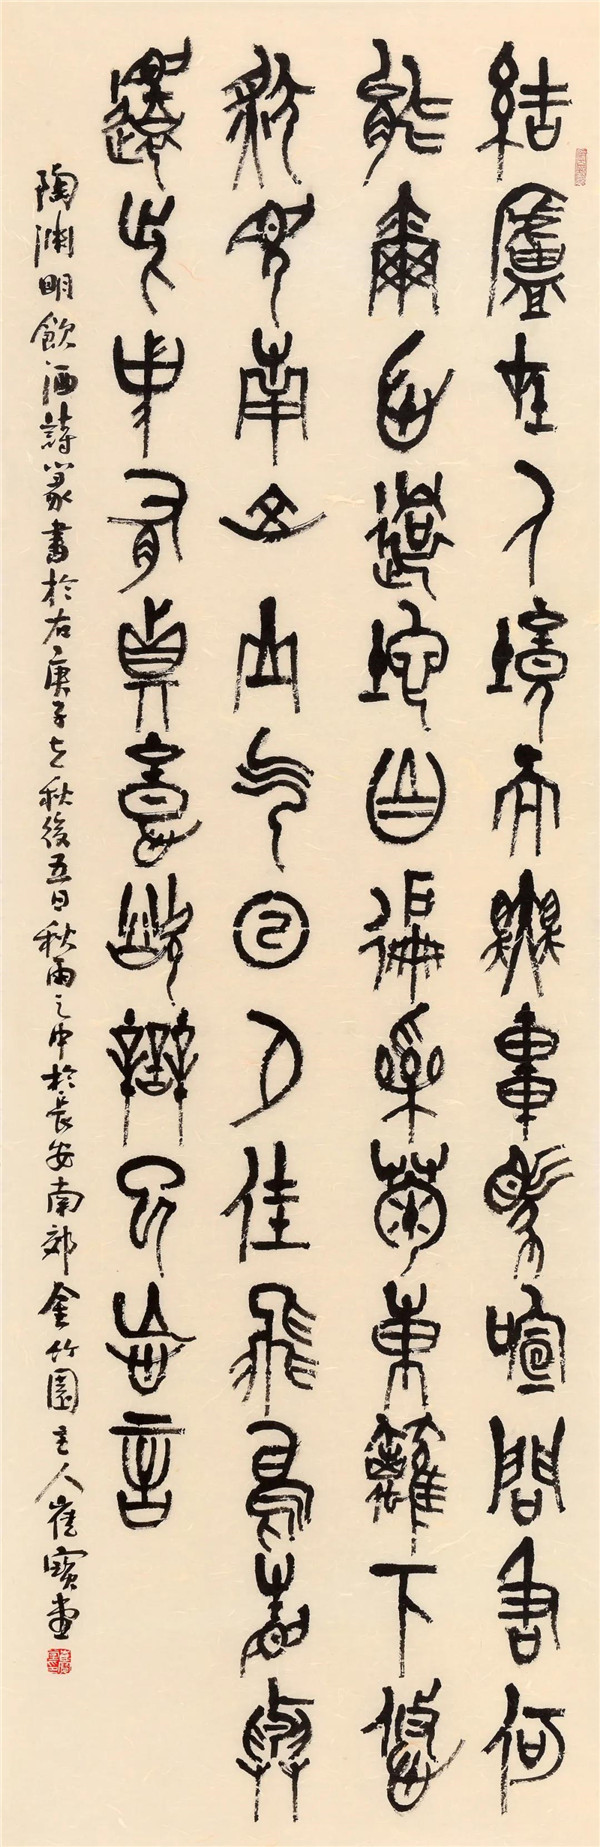 結廬在人境而無車馬喧問君何
能爾心遠地自偏采菊東籬下悠
然見南山山氣日夕佳飛鳥相與
還此中有真意欲辯已忘言
陶渊明飲酒詩篆書於右庚子立秋後五日秋雨之中於長安南郊金竹園主人崔寶堂